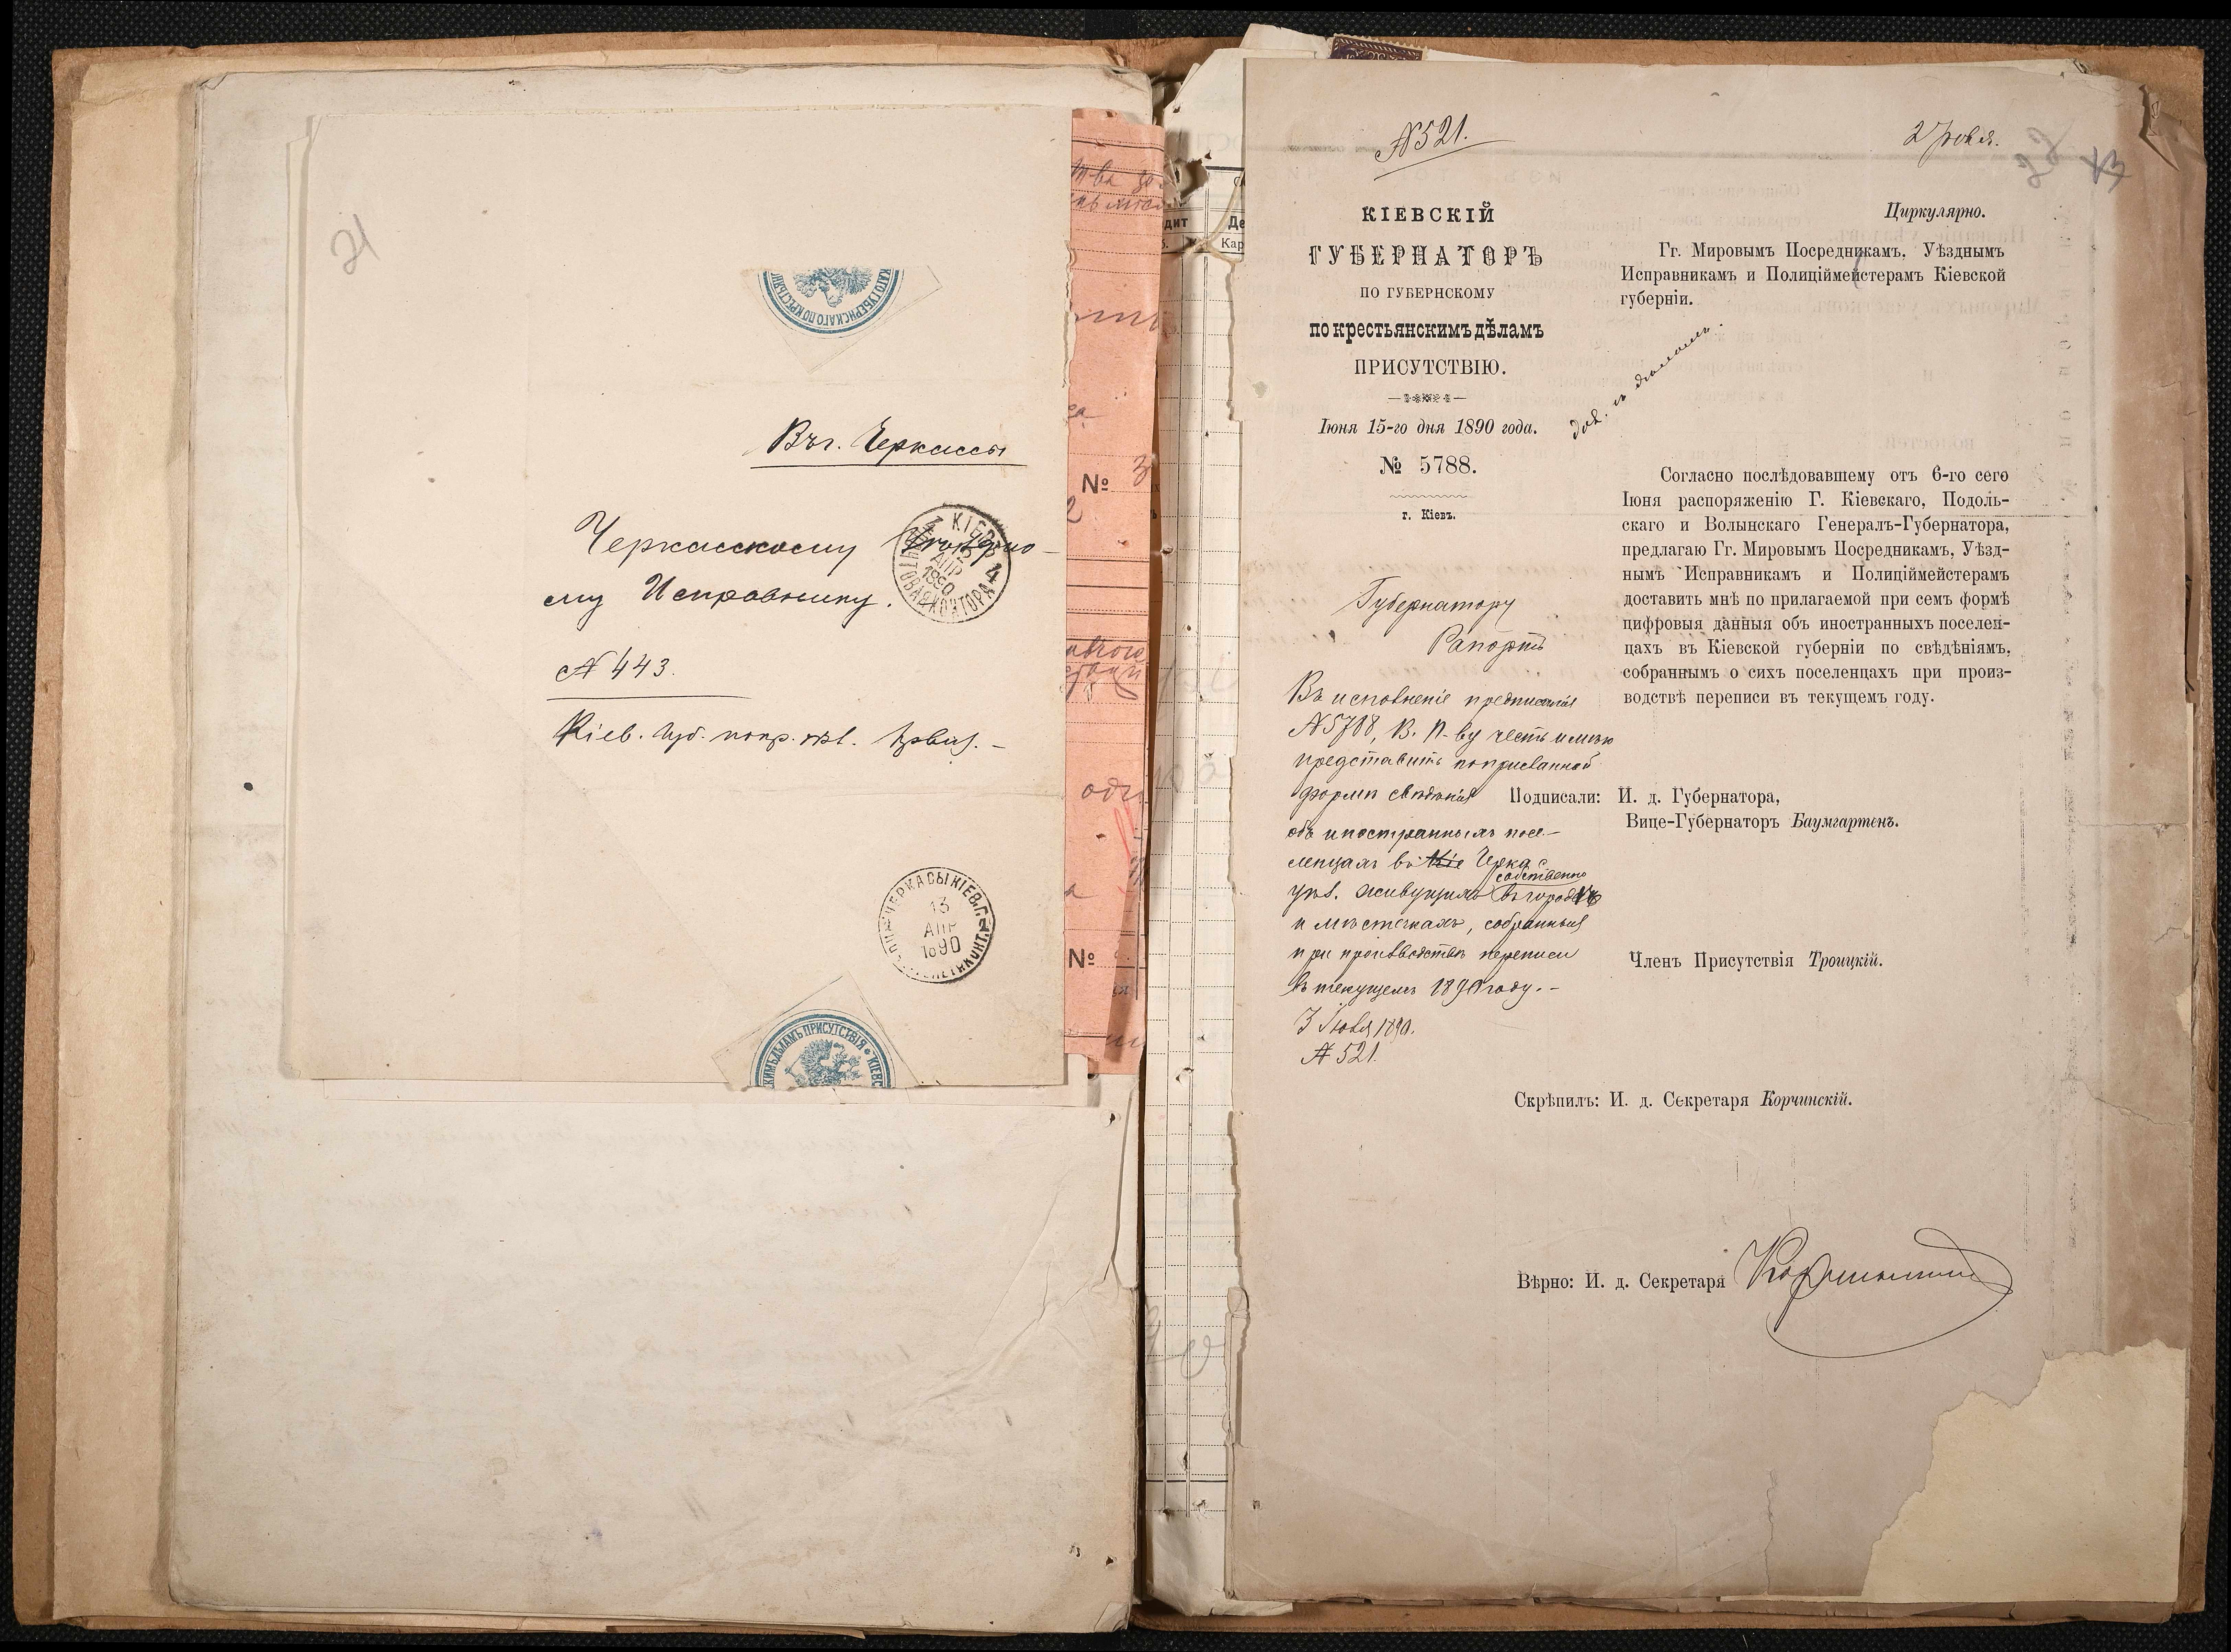 21
КАГО ГУБЕРНСКАГО ПО КРЕСТЬЯН
Въ г. Черкассы
Черкасскому
му Исправнику.
КІЕВЪ 4
АПР
1890
ПОЧТОВАЯ КОНТОРА
№ 443.
Кіев. Губ. по кр. дѣл.
ЧЕРКАСЫ КІЕВ. Г.
13
АПР
1890
КИМЪ ДѢЛАМЪ ПРИСУТСТВІЯ * КІЕВС
№ 3
№
дит
Де
Кар
№ 521.
22
КІЕВСКІЙ
ГУБЕРНАТОРЪ
ПО ГУБЕРНСКОМУ
по крестьянскимъ дѣламъ
ПРИСУТСТВІЮ.
Іюня 15-го дня 1890 года.
№ 5788.
г. Кіевъ.
Циркулярно.
Гг. Мировымъ Посредникамъ, Уѣзднымъ
Исправникамъ и Полиціймейстерамъ Кіевской
губерніи.
Согласно послѣдовавшему отъ 6-го сего
Іюня распоряженію Г. Кіевскаго, Подоль-
скаго и Волынскаго Генералъ-Губернатора,
предлагаю Гг. Мировымъ Посредникамъ, Уѣзд-
нымъ Исправникамъ и Полиціймейстерамъ
доставить мнѣ по прилагаемой при семъ формѣ
цифровыя данныя объ иностранныхъ поселен-
цахъ въ Кіевской губерніи по свѣдѣніямъ,
собраннымъ о сихъ поселенцахъ при произ-
водствѣ переписи въ текущемъ году.
Губернатору
Рапортъ
Въ исполненіе предписанія
№ 5788, В. П-ву честь имѣю
представить по присланной
формѣ свѣдѣнія
объ иностранныхъ посе-
ленцахъ въ Черкас
уѣз. живущихъ собственно въ городѣ
и мѣстечкахъ, собранныя
при производствѣ переписи
въ текущемъ 1890 году.-
3 Іюля 1890.
№ 521.
Подписали: И. д. Губернатора,
Вице-Губернаторъ Баумгартенъ.
Членъ Присутствія Троицкій.
Скрѣпилъ: И. д. Секретаря Корчинскій.
Вѣрно: И. д. Секретаря Корчинскій